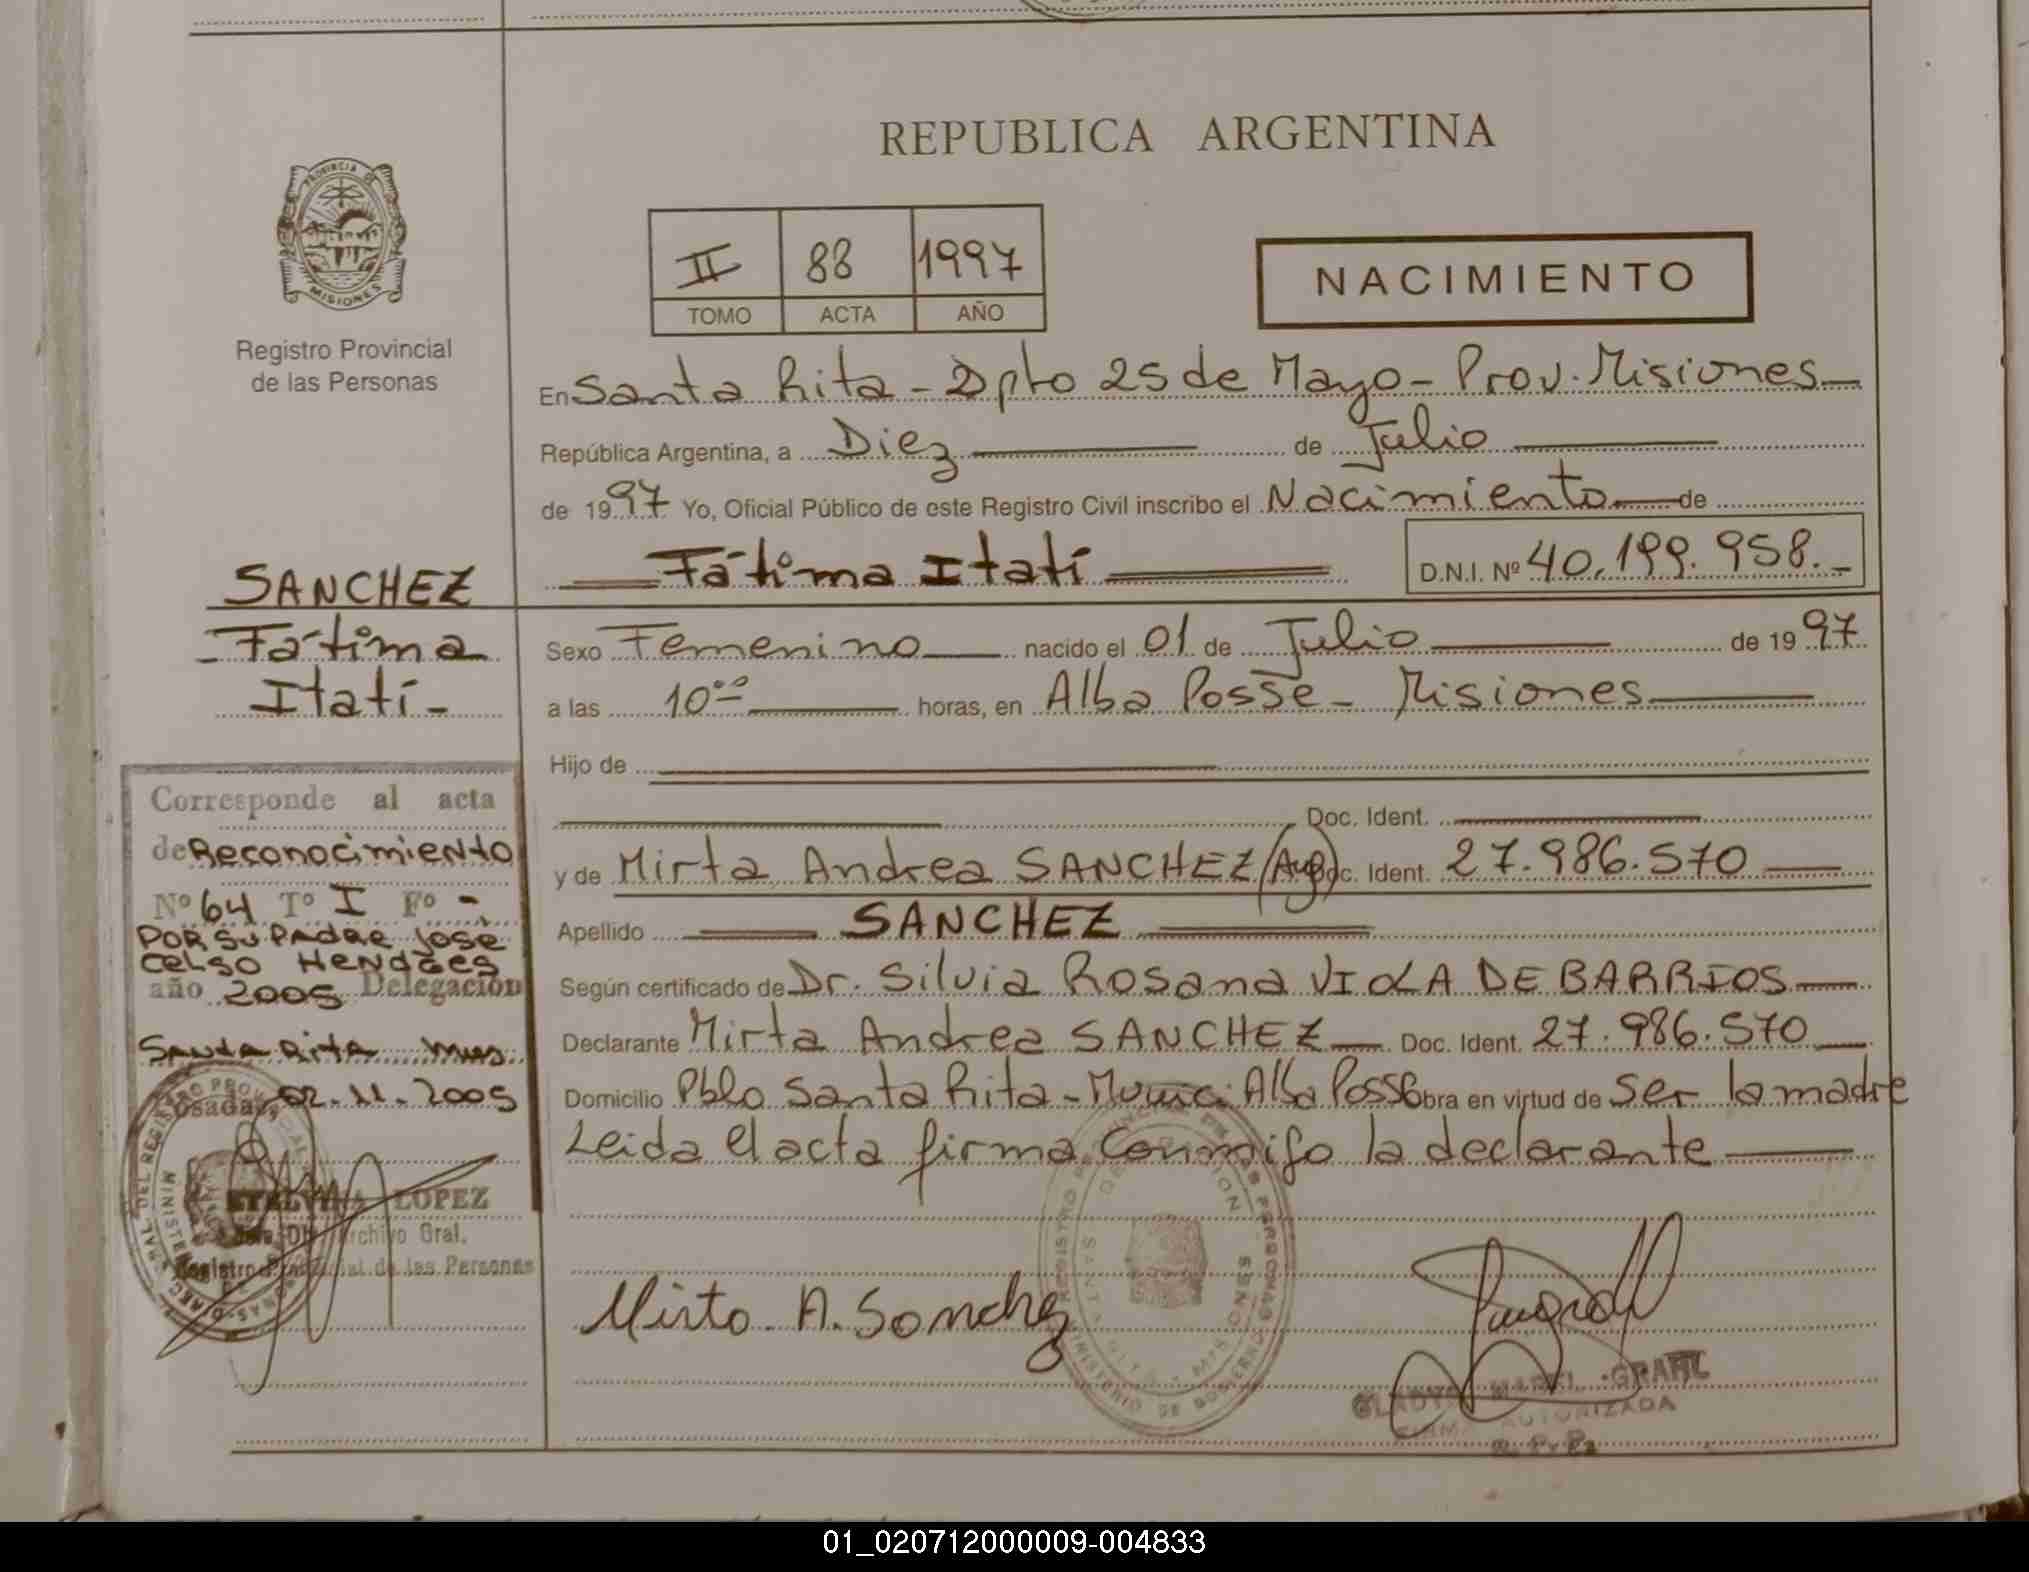 REPUBLICA ARGENTINA
PROVINCIA DE
MISIONES
Registro Provincial
de las Personas
II 88 1997
TOMO ACTA AÑO
NACIMIENTO
En Santa Rita - Dpto 25 de Mayo - Prov. Misiones
República Argentina, a Diez de Julio
de 1997 Yo, Oficial Público de este Registro Civil inscribo el Nacimiento de
Fátima Itatí D.N.I. Nº 40.199.958.-
SANCHEZ
Fátima
Itatí-
Sexo Femenino nacido el 01 de Julio de 1997
a las 10 horas, en Alba Posse - Misiones
Hijo de
Doc. Ident.
y de Mirta Andrea SANCHEZ (Arg) Doc. Ident. 27.986.570
Apellido SANCHEZ
Según certificado de Dr. Silvia Rosana VIOLA DE BARRIOS
Declarante Mirta Andrea SANCHEZ Doc. Ident. 27.986.570
Domicilio Pblo Santa Rita - Munic. Alba Posse Obra en virtud de ser la madre
Leida el acta firma conmigo la declarante
Corresponde al acta
de Reconocimiento
Nº 64 Tº I Fº -
POR SU PADRE José
CELSO Hendges
año 2005 Delegación
Santa Rita Mnes.
Posadas, 02.11.2005
LOPEZ
Archivo Gral.
Registro Provincial de las Personas
Mirta A. Sanchez
GLADYS MABEL GRAHL
FIRMA AUTORIZADA
R. P. Ps
01_020712000009-004833